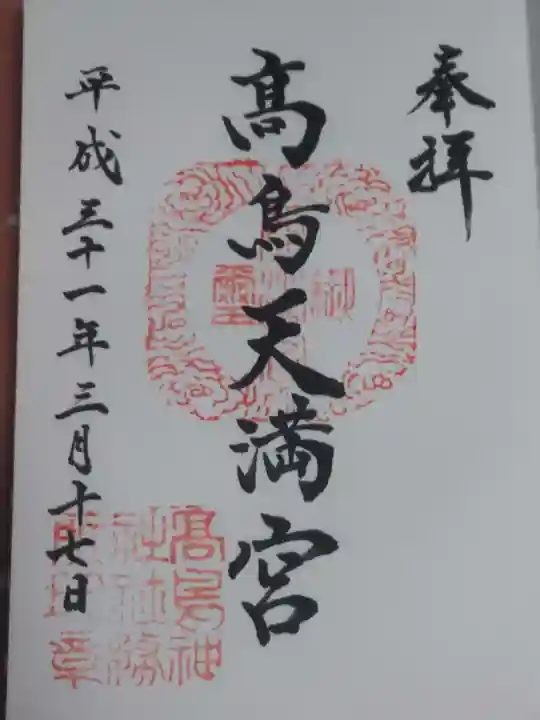 奉拝
高鳥天満宮
平成三十一年三月十七日
高鳥神
社社務